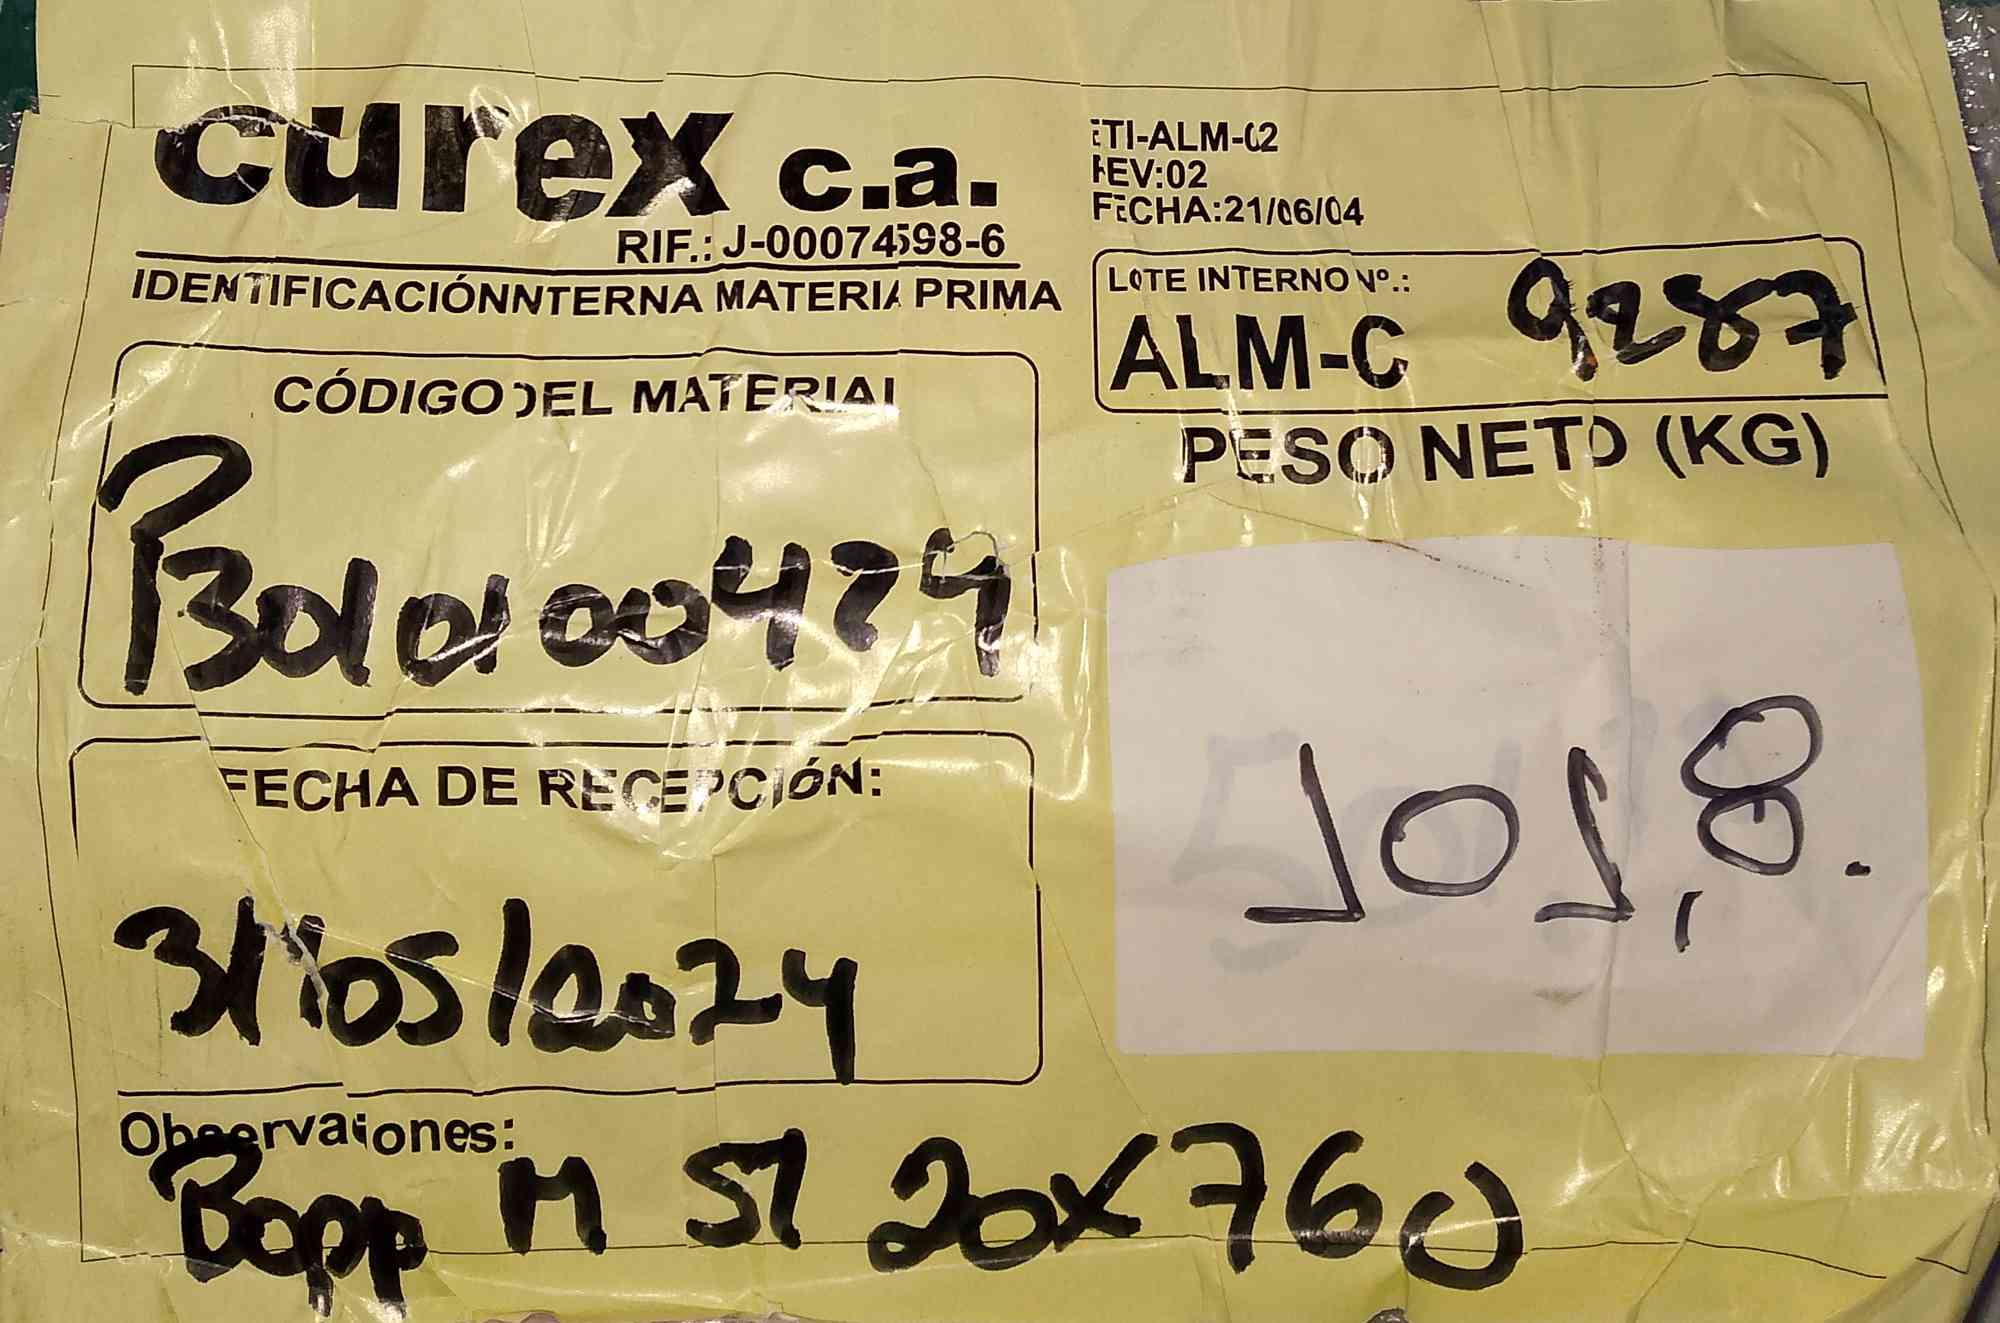 curex c.a.
RIF.: J-00074598-6
IDENTIFICACIÓNNTERNA MATERIA PRIMA
ETI-ALM-02
REV:02
FECHA:21/06/04
LOTE INTERNO Nº.:
ALM-C 9287
CÓDIGO DEL MATERIAL
PB010100424
PESO NETO (KG)
101,8.
FECHA DE RECEPCIÓN:
31/05/2024
Observaiones:
Bopp M ST 20x760